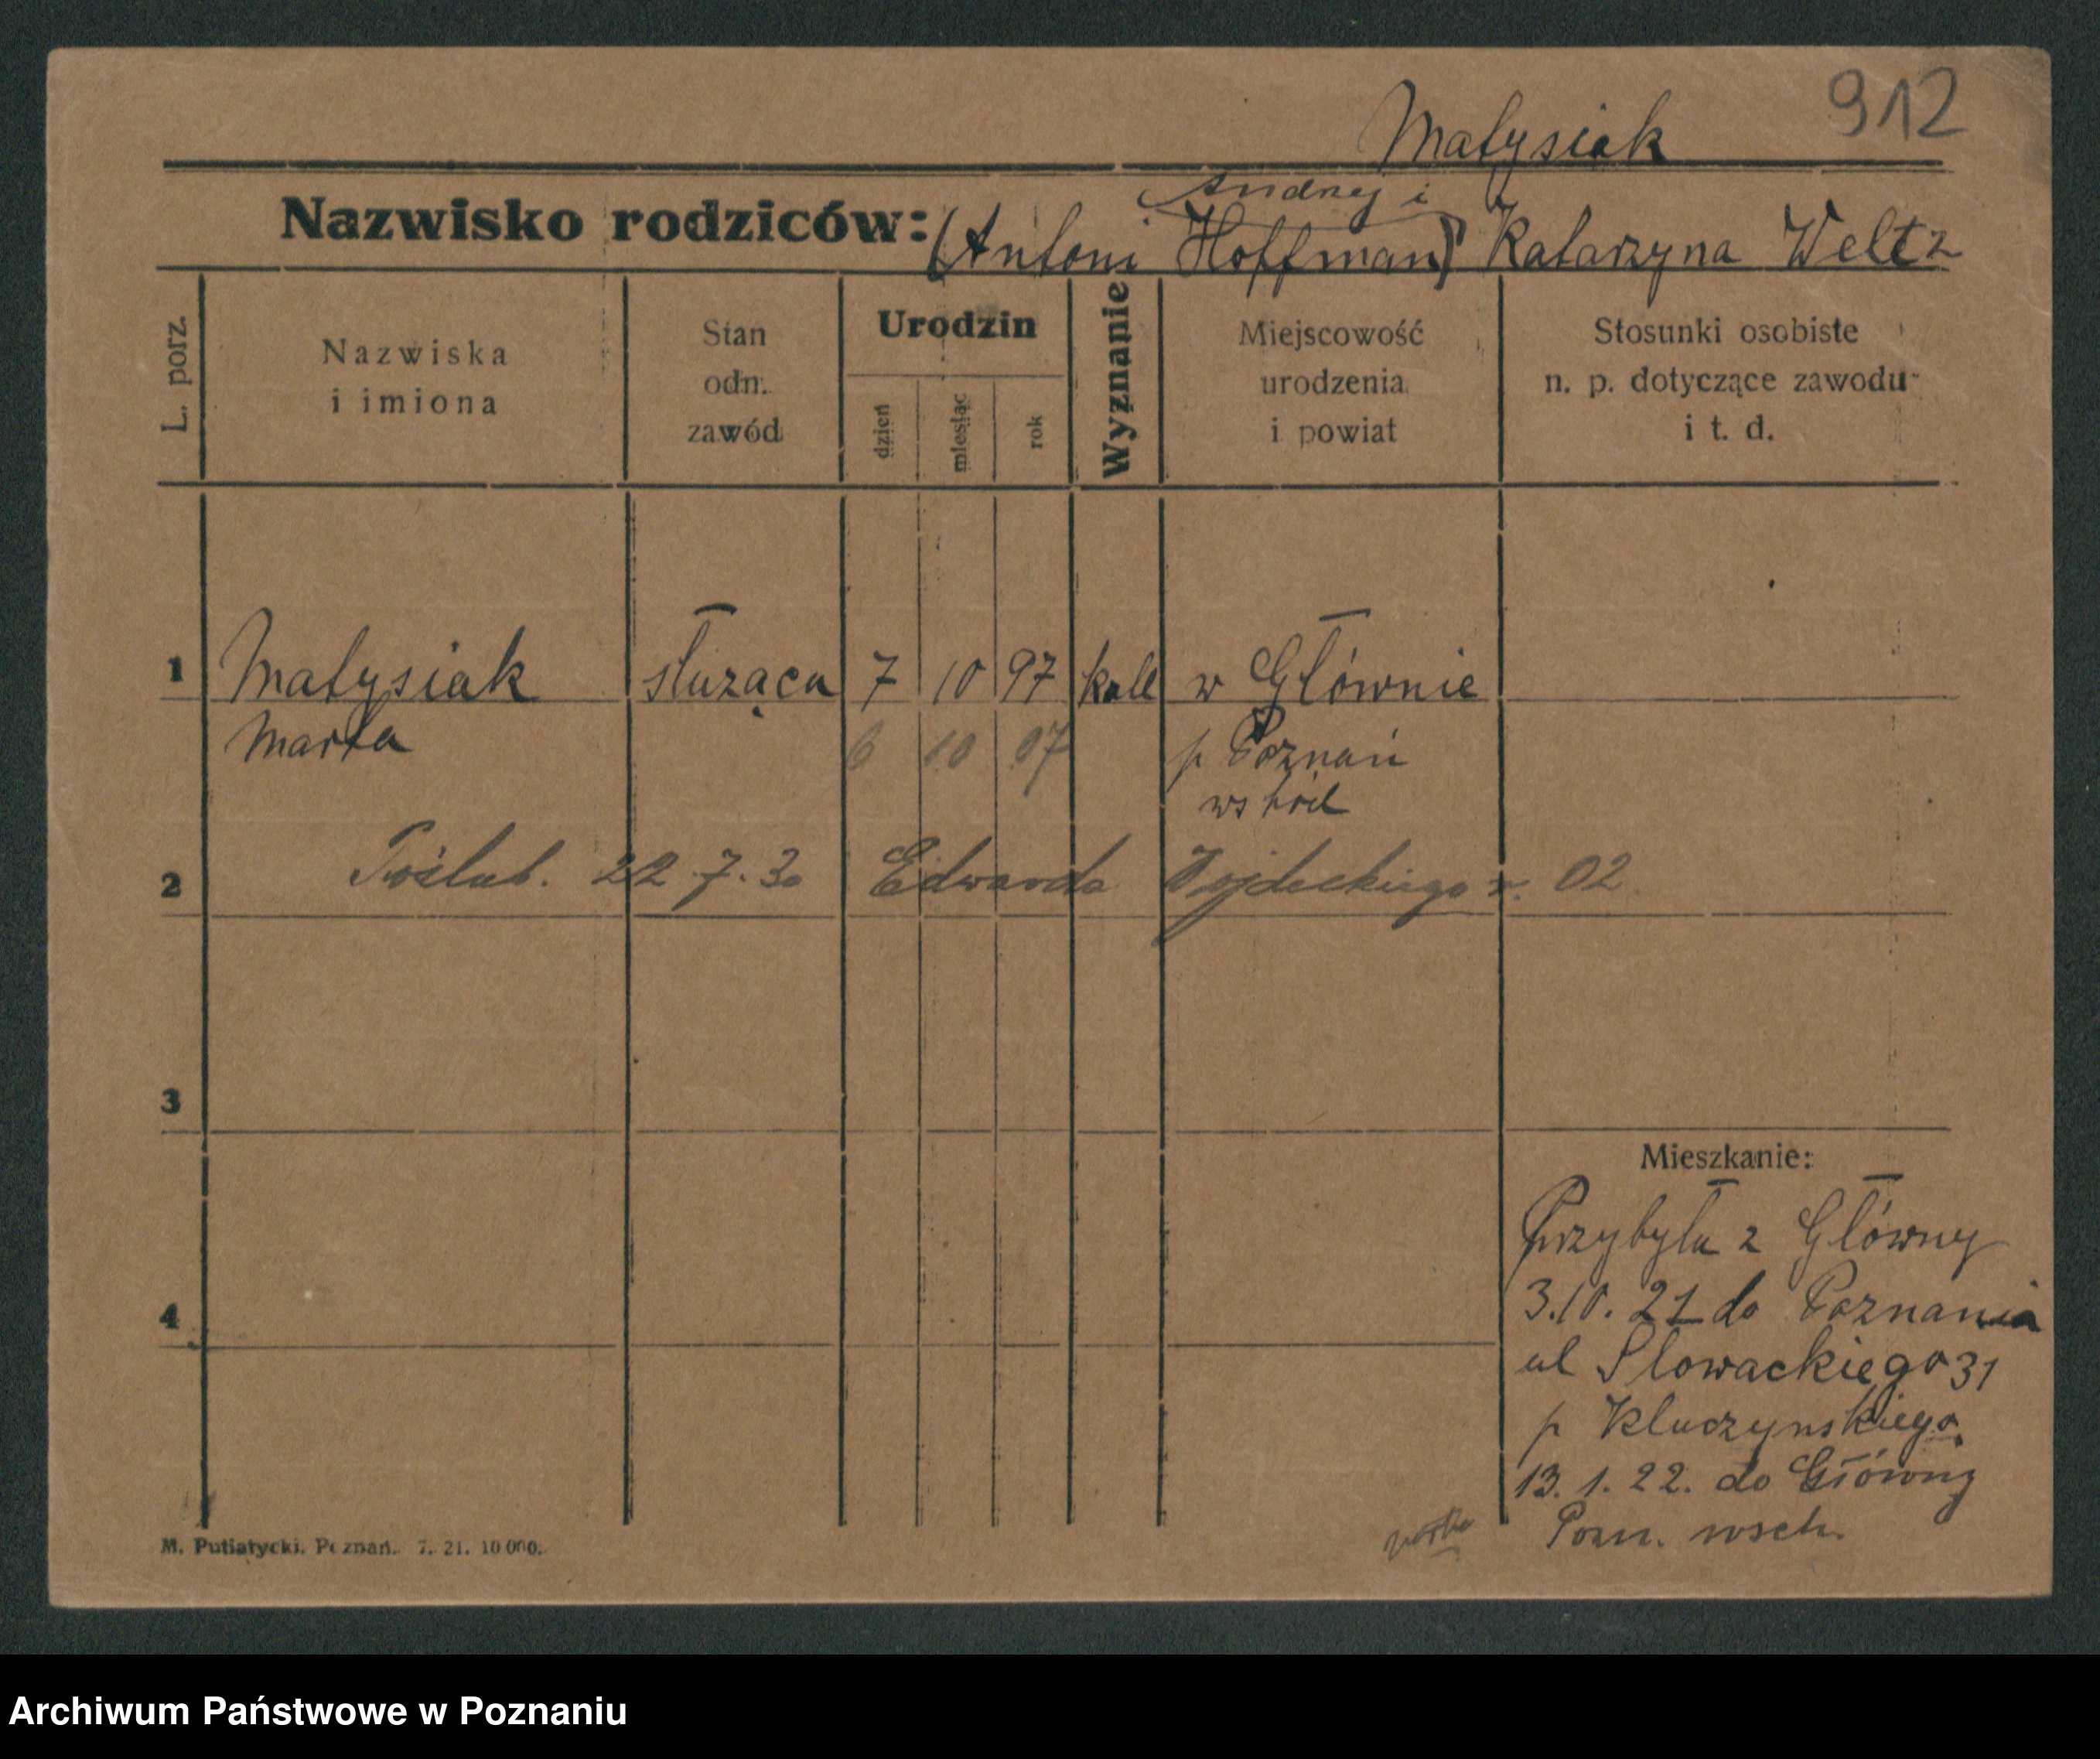 912
Matysiak
Andrzej i
Nazwisko rodziców: (Antoni Hoffman) Katarzyna Weltz
L. porz.
Nazwiska
i imiona
Stan
odn.
zawód
Urodzin
dzień
miesiąc
rok
Wyznanie
Miejscowość
urodzenia
i powiat
Stosunki osobiste
n. p. dotyczące zawodu
i t. d.
1 Matysiak służąca 7 10 97 katl w Głównie
Marta 6 10 97 p Poznań
wschd
2 Poślub. 22.7.30 Edwarda r. 02
3
4
Mieszkanie:
Przybyła z Główny
3.10.21 do Poznania
ul Slowackiego 31
p Kluczynskiego
13.1.22. do Główny
Pozn. wsch.
M. Putiatycki. Poznań. 7. 21. 10 000.
Archiwum Państwowe w Poznaniu